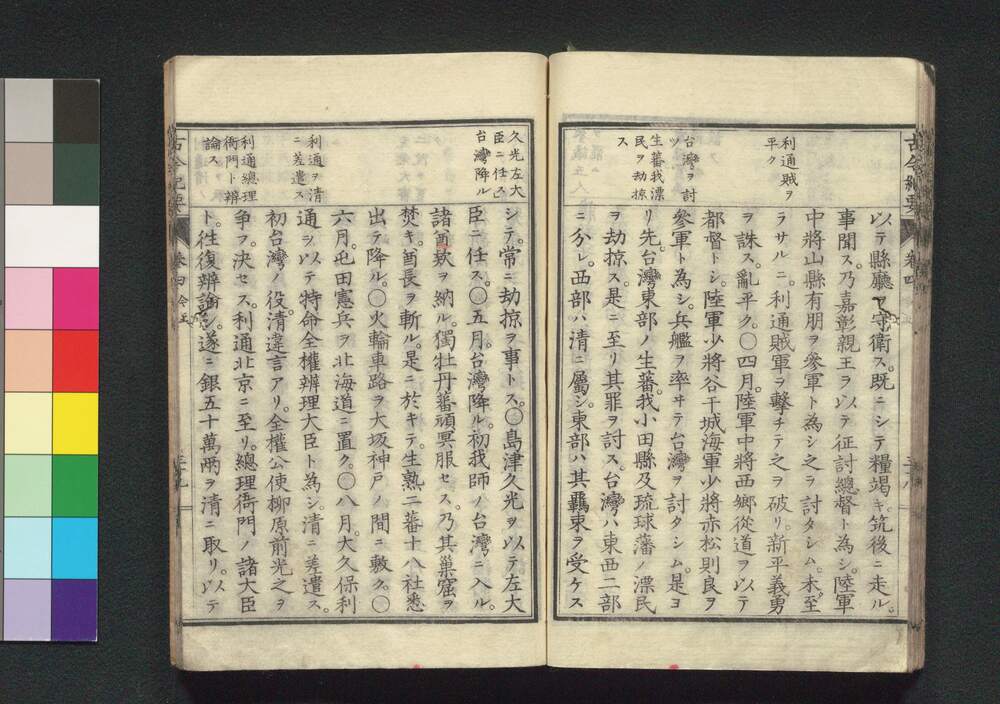 古今紀要 卷四
利通賊ヲ
平ク
台灣ヲ討
ツ
生蕃我漂
民ヲ劫掠
ス
以テ縣廳ヲ守衛ス。既ニシテ糧竭キ。筑後ニ走ル。
事聞ス。乃嘉彰親王ヲ以テ征討總督ト為シ。陸軍
中將山縣有朋ヲ參軍ト為シ之ヲ討タシム。未至
ラサルニ。利通賊軍ヲ擊チテ之ヲ破リ。新平義勇
ヲ誅ス。亂平ク。〇四月。陸軍中將西鄉從道ヲ以テ
都督トシ。陸軍少將谷干城海軍少將赤松則良ヲ
參軍ト為シ。兵艦ヲ率ヰテ台灣ヲ討タシム。是ヨ
リ先。台灣東部ノ生蕃。我小田縣及琉球藩ノ漂民
ヲ劫掠ス。是ニ至リ其罪ヲ討ス。台灣ハ東西二部
ニ分レ。西部ハ清ニ屬シ。東部ハ其羈束ヲ受ケス
久光左大
臣ニ任ス
台灣降ル
利通ヲ清
ニ差遣ス
利通總理
衙門ト辨
論ス
シテ。常ニ劫掠ヲ事トス。〇島津久光ヲ以テ左大
臣ニ任ス。〇五月。台灣降ル。初我師ノ台灣ニ入ル。
諸酋欵ヲ納ル。獨牡丹蕃頑冥服セス。乃其巢窟ヲ
焚キ。酋長ヲ斬ル。是ニ於キテ。生熟二蕃十八社悉
出テ降ル。〇火輪車路ヲ大坂神戸ノ間ニ敷ク。〇
六月。屯田憲兵ヲ北海道ニ置ク。〇八月。大久保利
通ヲ以テ特命全權辨理大臣ト為シ。清ニ差遣ス。
初台灣ノ役。清違言アリ。全權公使柳原前光之ヲ
争フ。決セス。利通北京ニ至リ。總理衙門ノ諸大臣
ト。往復辨論シ。遂ニ銀五十萬兩ヲ清ニ取リ。以テ
古今紀要 卷四